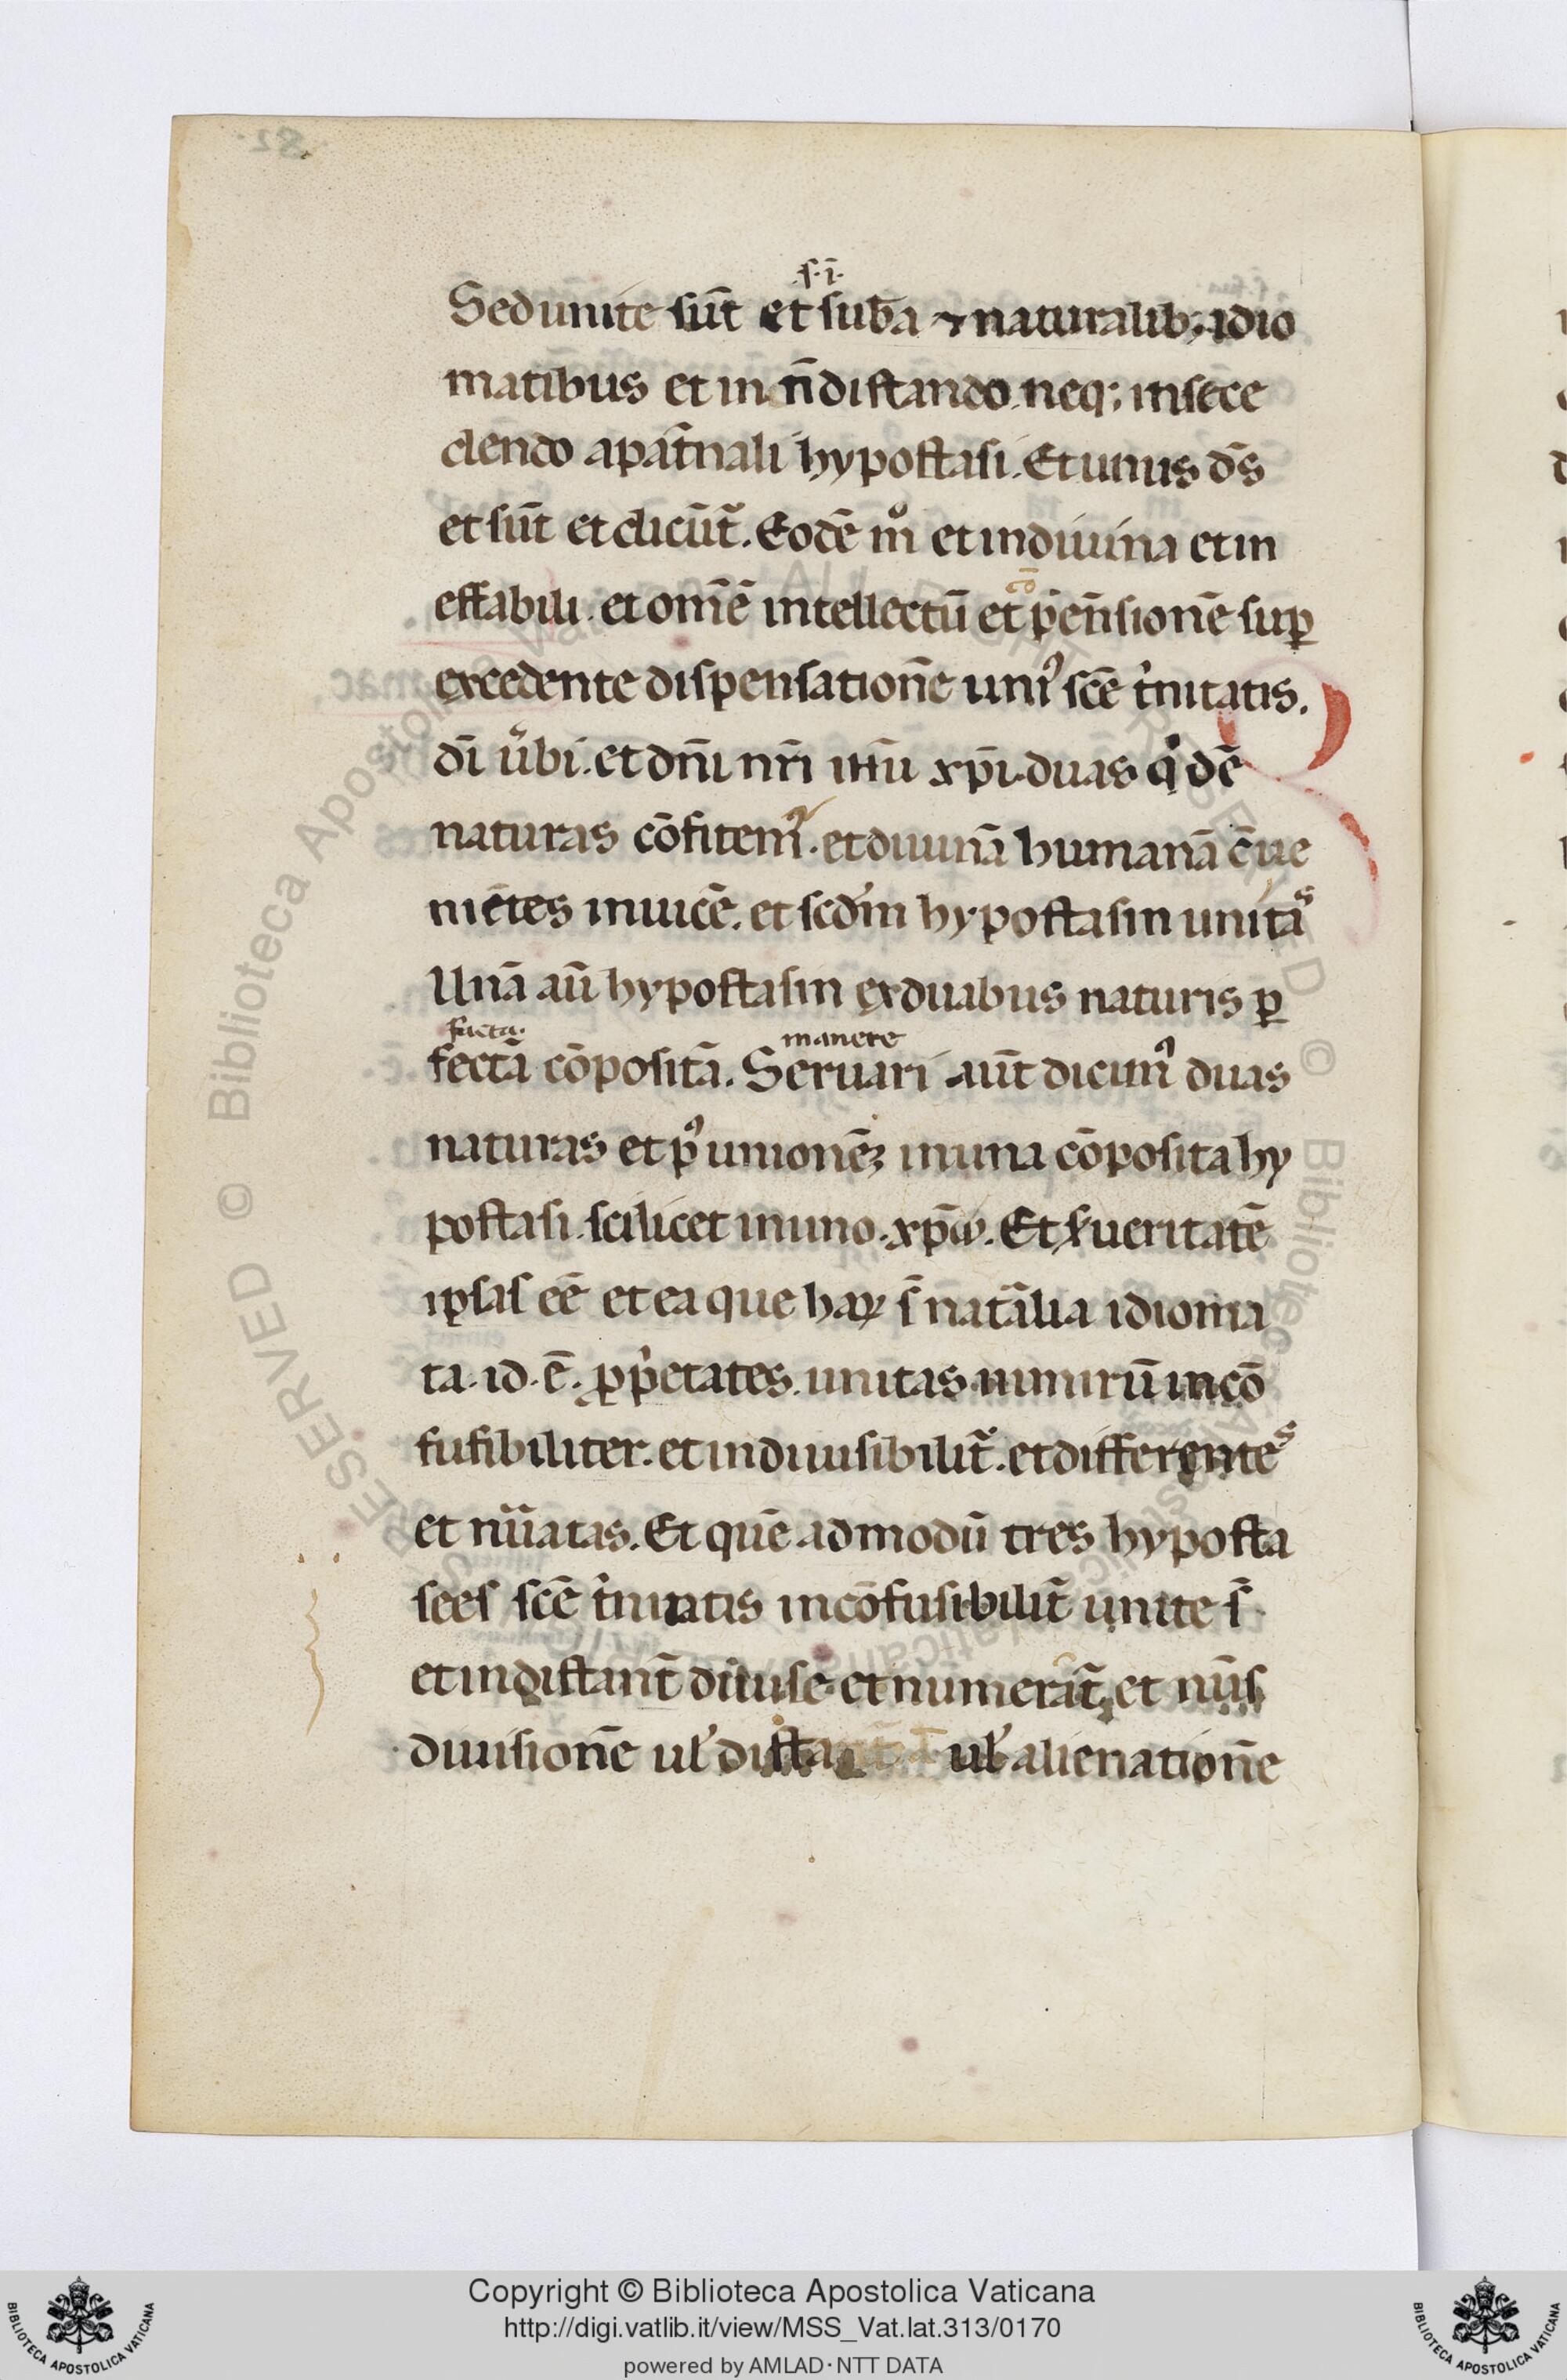 82.
s. i.
Sed unite sūt et sub̄a ⁊ naturalib; idio
matibus et in n̄ distando neq; in sece
dendo a pat̄nali hypostasi. Et unus ds̄
et sūt et dicūt᷑. Eodē mͦ et in diuina et in
effabili. et om̄ē intellectū et p̄en̄sionē sup̱
cō
excedente dispensatione uniꝰ scē tͥnitatis.
dī ūbi. et dn̄i nr̄i iħū xp̄i. duas qͥdē
naturas cōfitemꝰ. et diuinā humanā ꝯ̄ue
niētes inuicē. et scd̄m hypostasin unitaˢ
Unā aū hypostasin ex duabus naturis ꝑ
facta.
manere
fectā cōpositā. Seruari aūt dicimꝰ duas
naturas et pꝰ unionēꝫ in una cōposita hy
postasi. scilicet in uno. xp̄o. Et ueritatē
ipsas eē et ea que haꝝ s̄ natālia idioma
ta. id. ē. ꝓpͥetates. unitas nimirū incō
fusibiliter. et indiuisibilit᷑. et differenteˢ
et nūatas. Et quē admodū tres hyposta
sees scē tͥnitatis incōfusibilit᷑ unite s̄
et indistant᷑ diuise et numerāt᷑. et nūs
diuisionē ul̓ dista ul̓ alienationē
Copyright © Biblioteca Apostolica Vaticana
http://digi.vatlib.it/view/MSS_Vat.lat.313/0170
powered by AMLAD·NTT DATA
BIBLIOTECA APOSTOLICA VATICANA
BIBLIOTECA APOSTOLICA VATICANA